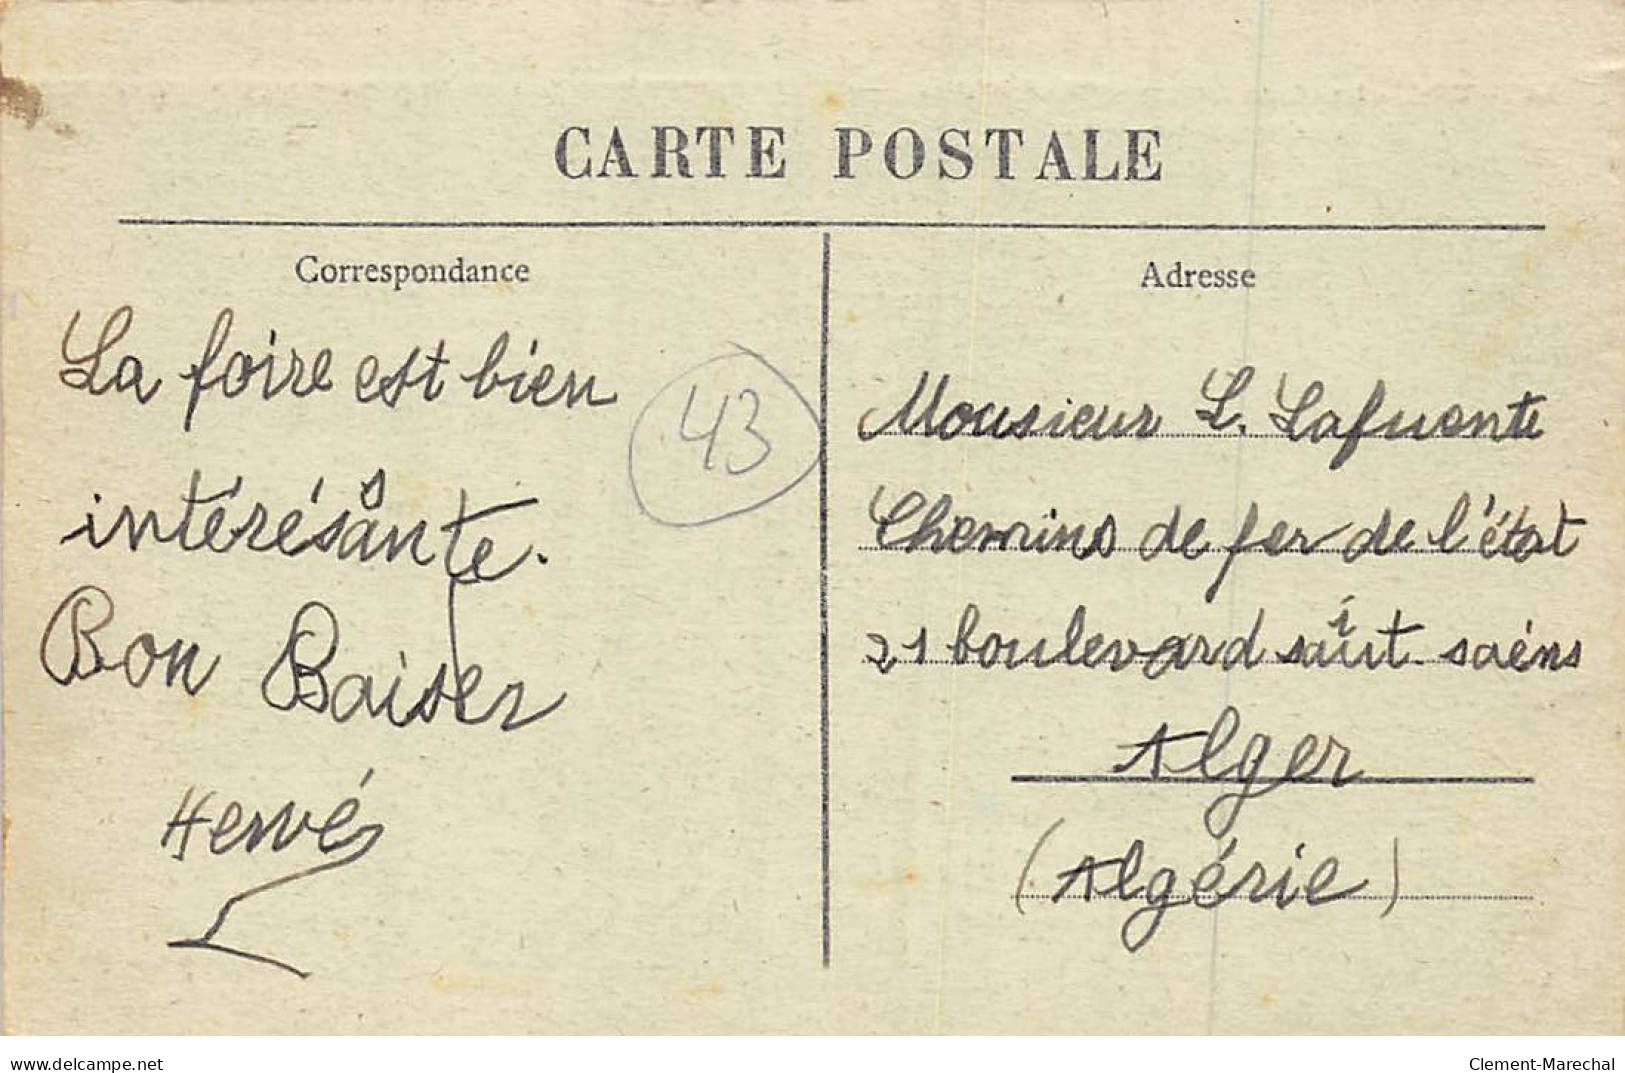 CARTE POSTALE
Correspondance
La foire est bien
intéréssante.
Bon Baiser
Hervé
43
Adresse
Monsieur L. Lafuente
Chemins de fer de l'état
21 boulevard saint saéns
Alger
(Algérie)
www.delcampe.net
Clement-Marechal